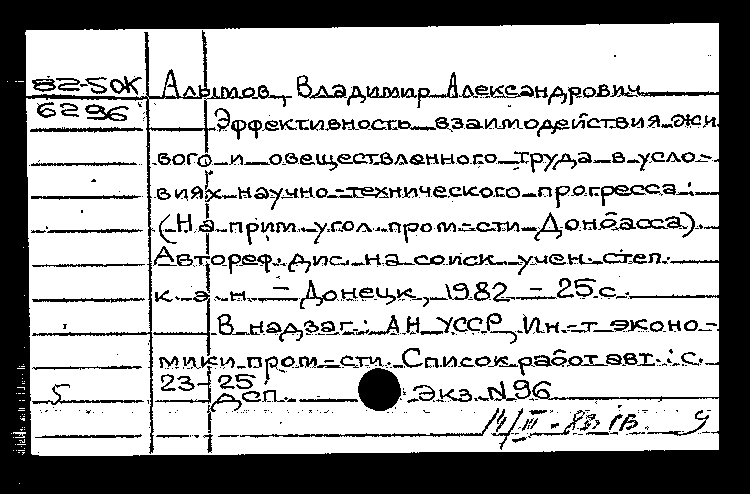 82-5 ОК
6296
Алымов, Владимир Александрович
Эффективность взаимодействия жи
вого и овеществленного труда в усло-
виях научно-технического прогресса:
(На прим. угол. пром-сти Донбасса).
Автореф. дис. на соиск. учен. степ.
к. э. н. - Донецк, 1982 - 25 с.
В надзаг.: АН УССР, Ин-т эконо-
мики пром-сти. Список работ авт.: с.
23-25
5 ДСП. Экз. N 96
14/III - 83г.